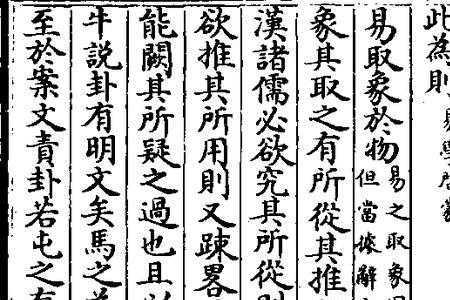 此為則
易取象於物
易之取象
但當據解
象其取之有所從其推
漢諸儒必欲究其所從則
欲推其所用則又踈畧
能闕其所疑之過也且以
牛説卦有明文矣馬之為
至於案文責卦若屯之有